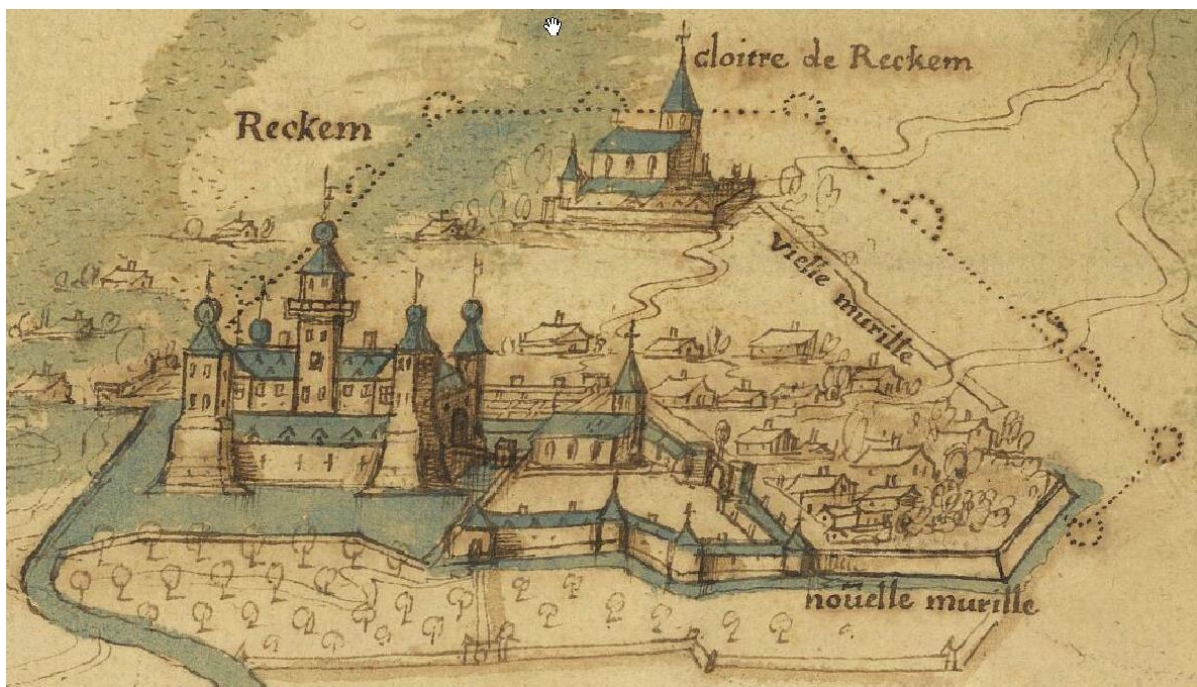 cloitre de Reckem
Reckem
vielle murille
noüelle murille